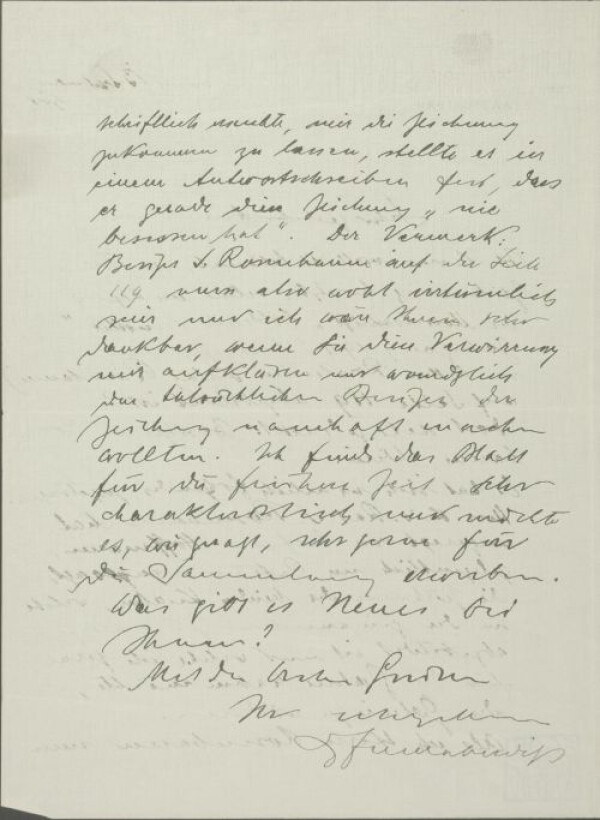 schriftlich ersuchte, mir die Zeichnung
zukommen zu lassen, stellte es in
einem Antwortschreiben fest, dass
er gerade diese Zeichnung „nie
besessen hat“. Der Vermerk:
Besitz S. Rosenbaum auf der Seite
119 muss also wohl irrtümlich
sein und ich wäre Ihnen sehr
dankbar, wenn Sie diese Verwirrung
mir aufklären und womöglich
den tatsächlichen Besitzer der
Zeichnung namhaft machen
wollten. Ich finde das Blatt
für die frühere Zeit sehr
charakteristisch und möchte
es, wie gesagt, sehr gerne für
die Sammlung erwerben.
Was gibt es Neues bei
Ihnen?
Mit den besten Grüßen
Ihr ergebener